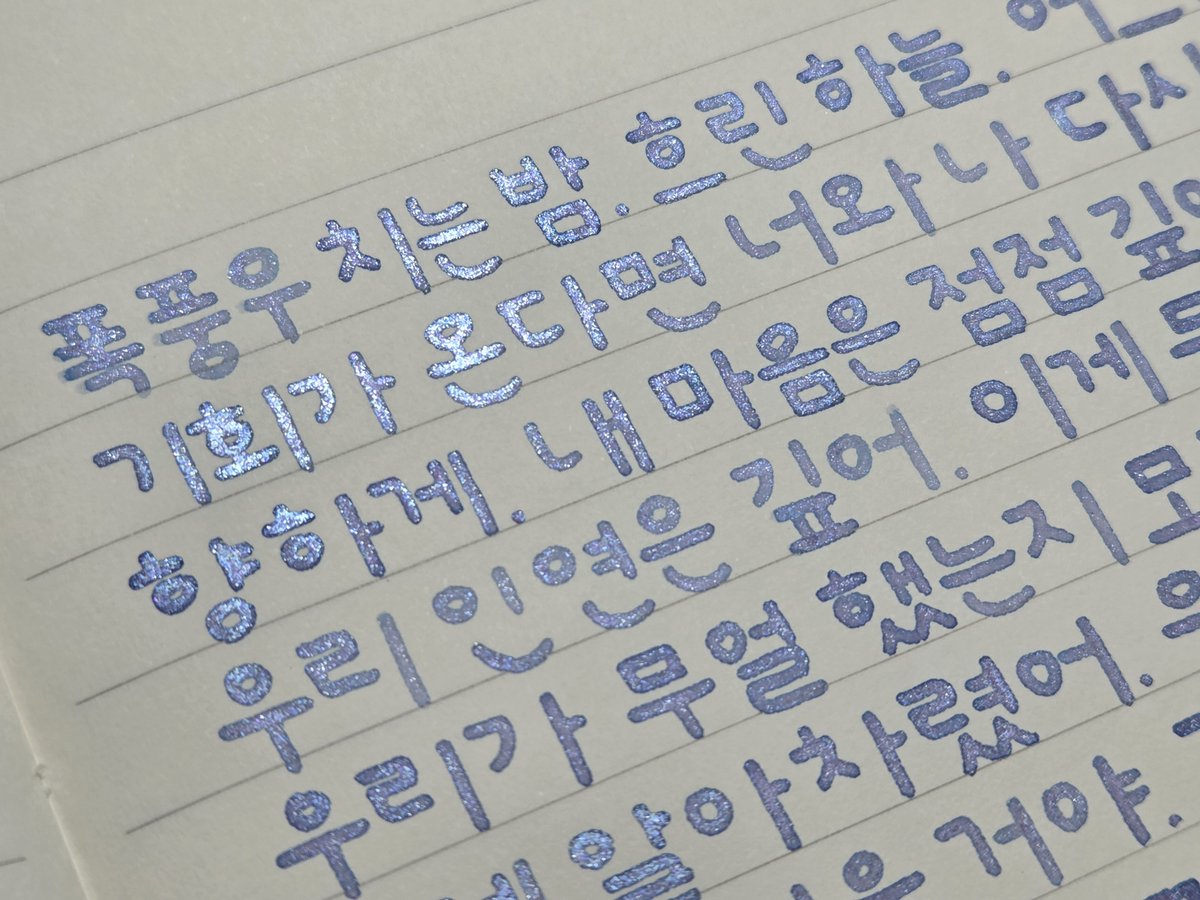 폭풍우 치는 밤. 흐린 하늘.
기회가 온다면 너와 나 다시
항하게. 내 마음은 점점 깊
우리 인연은 깊어. 이게
우리가 무얼 했는지
알아차렸어.
거야.